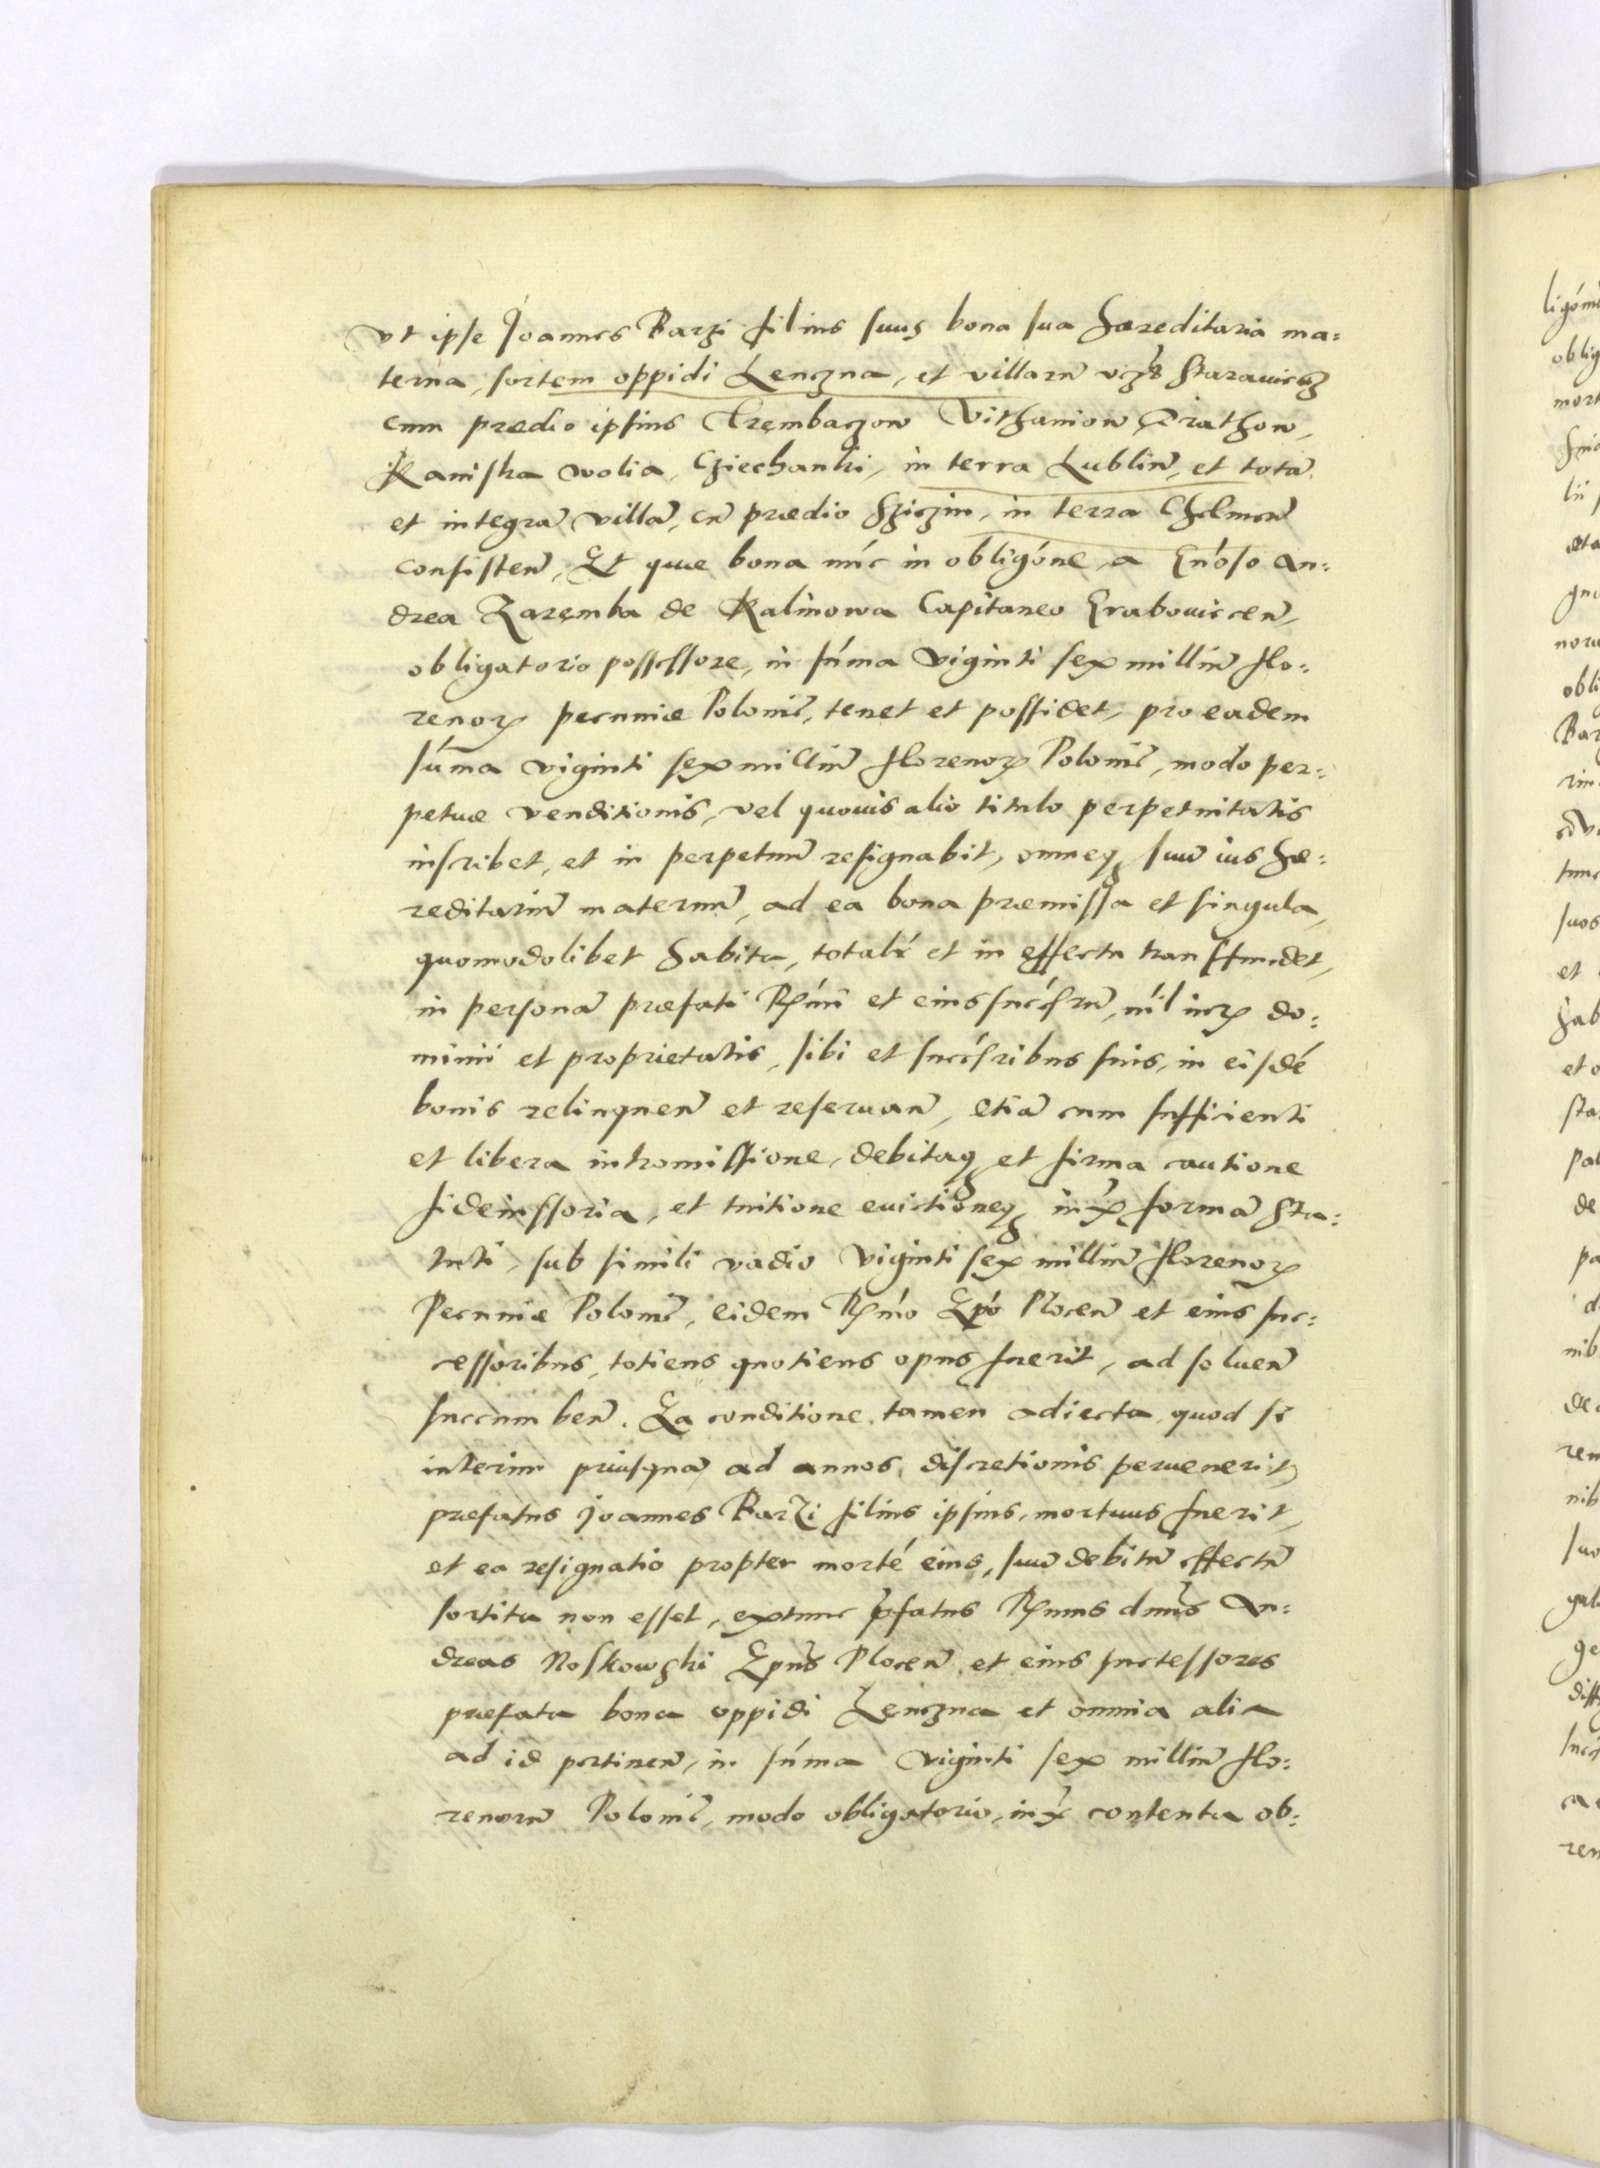 vt ipse Joannes Barzi filius suus bona sua haereditaria ma=
terna, sortem oppidi Lenczna, et villarũ vcz̃ Starauiesz
cum predio ipsius Trzembaczow Vithaniow Zirathow,
Kaniska wolia, Cziechanki, in terra Lubliñ, et totã
et integrã villã, cũ praedio Sziczin, in terra Chelmeñ
consisteñ, Et quae bona núc in obligóne, a Gnóso An=
drea Zaręmba de Kalinowa Capitaneo Grabouiecceñ,
obligatorio possessore, in súma viginti sex milliũ flo=
renoꝝ pecuniae Poloniẽ, tenet et possidet, pro eadem
súma viginti sex milliũ florenoꝝ Poloniẽ, modo per=
petuae venditionis, vel quouis alio titulo perpetuitatis
inscribet, et in perpetuũ resignabit, omneqȝ suũ ius hae=
reditariũ maternũ, ad ea bona praemissa et singula,
quomodolibet habita, totalr̃ et in effectu transfundet,
in personã praefati Rṃi et eius succ̃sorũ, níl iuꝝ do=
minii et proprietatis, sibi et succ̃soribus suis, in eisdé
bonis relinqueñ et reseruañ, etiã cum sufficienti
et libera intromissione, debitaqȝ et firma cautione
fideiussoria, et tuitione euictioneqȝ iux̃ formã Sta=
tuti, sub simili vadio viginti sex milliũ florenoꝝ
Pecuniae Poloniẽ, eidem Rṃo Epó Ploceñ et eius suc=
cessoribus, totiens quotiens opus fuerit, ad solueñ
succumbeñ. Ea conditione tamen adiecta, quod si
interim priusquã ad annos discretionis peruenerit,
praefatus Joannes Barzi filius ipsius, mortuus fuerit,
et ea resignatio propter morté eius, suũ debitũ effectũ
sortita non esset, extunc p̃fatus Rṃus dnũs An=
dreas Noskowski Epũs Ploceñ, et eius successores
praefata bona oppidi Lęnczna et omnia alia
ad id pertineñ, in súma viginti sex milliũ flo=
renorũ Poloniẽ, modo obligatorio, iux̃ contenta ob=